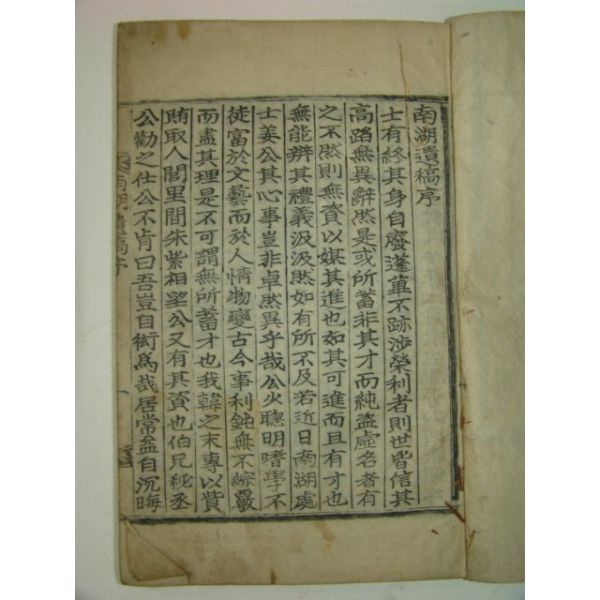 南湖遺稿序
士有終其身自廢蓬蓽不跡涉榮利者則世皆信其
高蹈無異辭然是或所蓄非其才而純盜虛名者有
之不然則無資以媒其進也如其可進而且有才也
無能辨其禮義汲汲然如有所不及若近日南湖處
士姜公其心事豈非卓然異乎哉公少聰明嗜學不
徒富於文藝而於人情物變古今事利鈍無不綜覈
而盡其理是不可謂無所蓄才也我韓之末專以貲
賄取人閭里間朱紫相望公又有其資也伯兄秘丞
公勸之仕公不肯曰吾豈自衒爲哉居常益自沉晦
南湖遺稿序